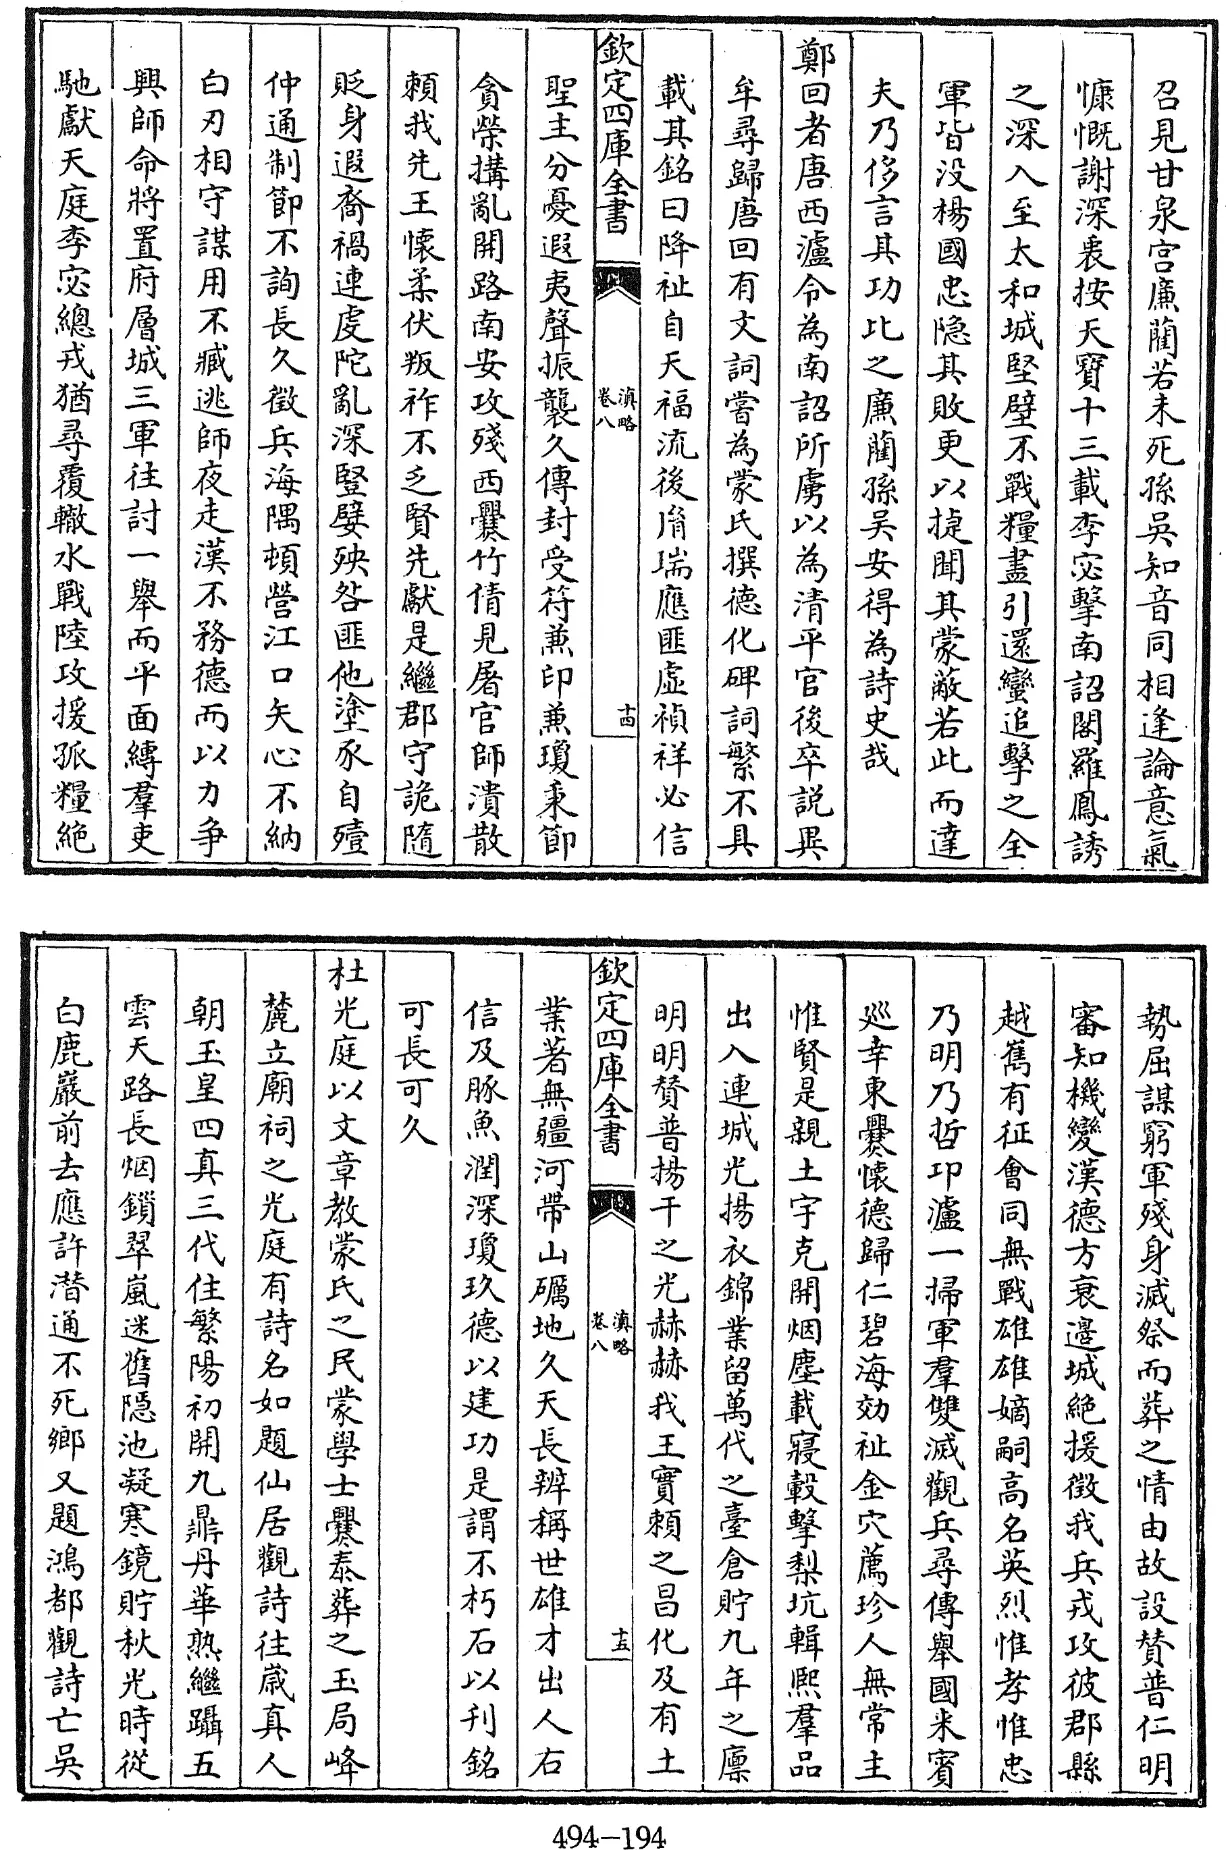 召見甘泉宫廉藺若未死孫吳知音同相逢論意氣
慷慨謝深衷按天寶十三載李宓擊南詔閣羅鳳誘
之深入至太和城堅壁不戰糧盡引還蠻追擊之全
軍皆没楊國忠隠其敗更以捷聞其蒙蔽若此而達
夫乃侈言其功比之廉藺孫吴安得為詩史哉
鄭回者唐西瀘令為南詔所虜以為清平官後卒説異
牟尋歸唐回有文詞嘗為蒙氏撰德化碑詞繁不具
載其銘曰降祉自天福流後㣧瑞應匪虚禎祥必信
欽定四庫全書
滇略
卷八
十四
聖主分憂遐夷聲振襲久傳封受符兼印兼瓊秉節
貪榮搆亂開路南安攻殘西爨竹倩見屠官師潰散
賴我先王懷柔伏叛祚不乏賢先獻是繼郡守詭隨
貶身遐裔禍連虔陀亂深竪嬖殃咎匪他塗豕自殪
仲通制節不詢長久徵兵海隅頓營江口矢心不納
白刃相守謀用不臧逃師夜走漢不務德而以力争
興師命將置府層城三軍往討一舉而平面縛羣吏
馳獻天庭李宓總戎猶尋覆轍水戰陸攻援孤糧絶
勢屈謀窮軍殘身滅祭而葬之情由故設賛普仁明
審知機變漢德方衰邊城絶援徴我兵戎攻彼郡縣
越嶲有征會同無戰雄雄嫡嗣高名英烈惟孝惟忠
乃明乃哲卭瀘一掃軍羣雙滅觀兵尋傳舉國来賓
廵幸東爨懷德歸仁碧海効祉金穴薦珍人無常主
惟賢是親土宇克開烟塵載寢轂擊梨坑輯熙羣品
出入連城光揚衣錦業留萬代之臺倉貯九年之廪
明明賛普揚干之光赫赫我王實頼之昌化及有土
欽定四庫全書
滇略
卷八
十五
業著無疆河帶山礪地久天長辨稱世雄才出人右
信及豚魚潤深瓊玖德以建功是謂不朽石以刋銘
可長可久
杜光庭以文章教蒙氏之民蒙學士爨泰葬之玉局峰
麓立廟祠之光庭有詩名如題仙居觀詩往歳真人
朝玉皇四真三代住繁陽初開九鼎丹華熟繼躡五
雲天路長烟鎖翠嵐迷舊隠池凝寒鏡貯秋光時從
白鹿巖前去應許潛通不死鄉又題鴻都觀詩亡吳
494-194